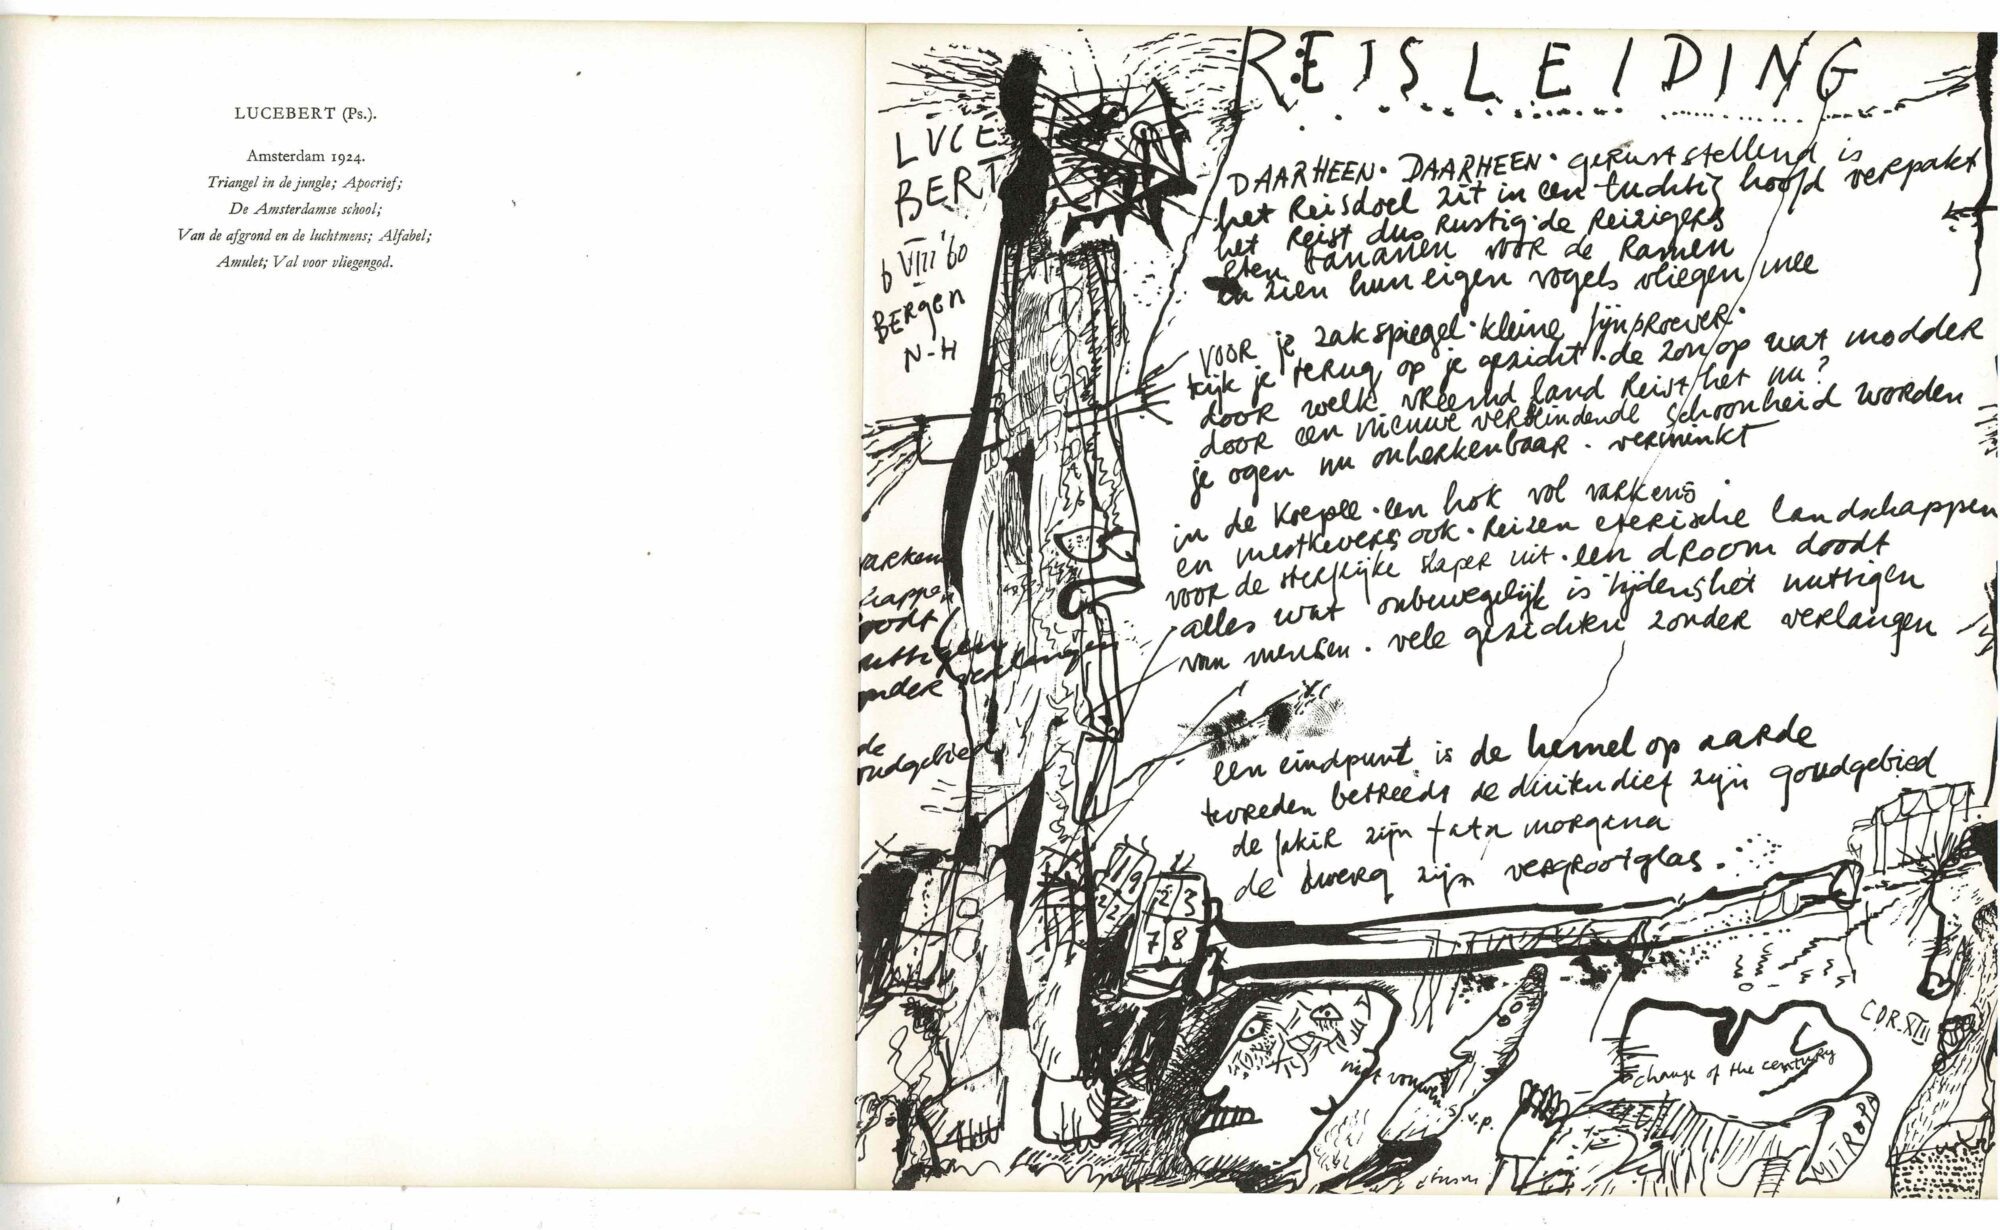 LUCEBERT (Ps.).
Amsterdam 1924.
Triangel in de jungle; Apocrief;
De Amsterdamse school;
Van de afgrond en de luchtmens; Alfabel;
Amulet; Val voor vliegengod.
LUCE
BERT
6 VIII '60
BERgen
N-H
REISLEIDING
DAARHEEN. DAARHEEN. geruststellend is
het Reisdoel zit in een tuchtig hoofd verpakt
het reist dus rustig. de Reizigers
eten bananen voor de Ramen
en zien hun eigen vogels vliegen mee
voor je zakspiegel. kleine fijnproever.
kijk je terug op je gezicht. de zon op wat modder
door welk vreemd land reist het nu?
door een nieuwe verblindende schoonheid worden
je ogen nu onherkenbaar. verminkt
in de koepee. een hok vol varkens.
en mestkevers ook. Reizen eterische landschappen
voor de sterfelijke slaper uit. een droom doodt
alles wat onbeweeglijk is tijdens het nuttigen
van mensen. vele gezichten zonder verlangen
een eindpunt is de hemel op aarde
tevreden betreedt de duitendief zijn goudgebied
de fakir zijn fata morgana
de dwerg zijn vergrootglas.
varken
happen
oodt
uttigen
onder verlangen
de
oudgebied
19
22
23
78
niet vouwen
s.v.p.
change of the century
COR. XIII
MITROPA